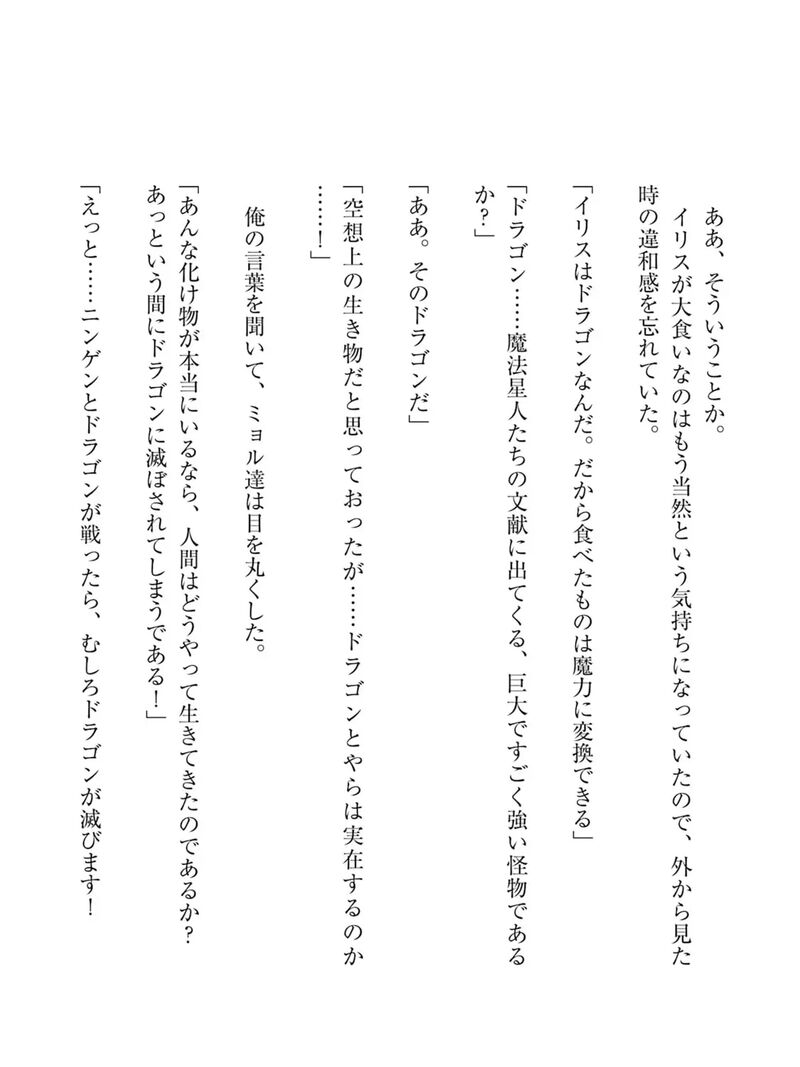 ああ、そういうことか。
イリスが大食いなのはもう当然という気持ちになっていたので、外から見た
時の違和感を忘れていた。
「イリスはドラゴンなんだ。だから食べたものは魔力に変換できる」
「ドラゴン……魔法星人たちの文献に出てくる、巨大ですごく強い怪物である
か？」
「ああ。そのドラゴンだ」
「空想上の生き物だと思っておったが……ドラゴンとやらは実在するのか
……！」
俺の言葉を聞いて、ミョル達は目を丸くした。
「あんな化け物が本当にいるなら、人間はどうやって生きてきたのであるか？
あっという間にドラゴンに滅ぼされてしまうである！」
「えっと……ニンゲンとドラゴンが戦ったら、むしろドラゴンが滅びます！